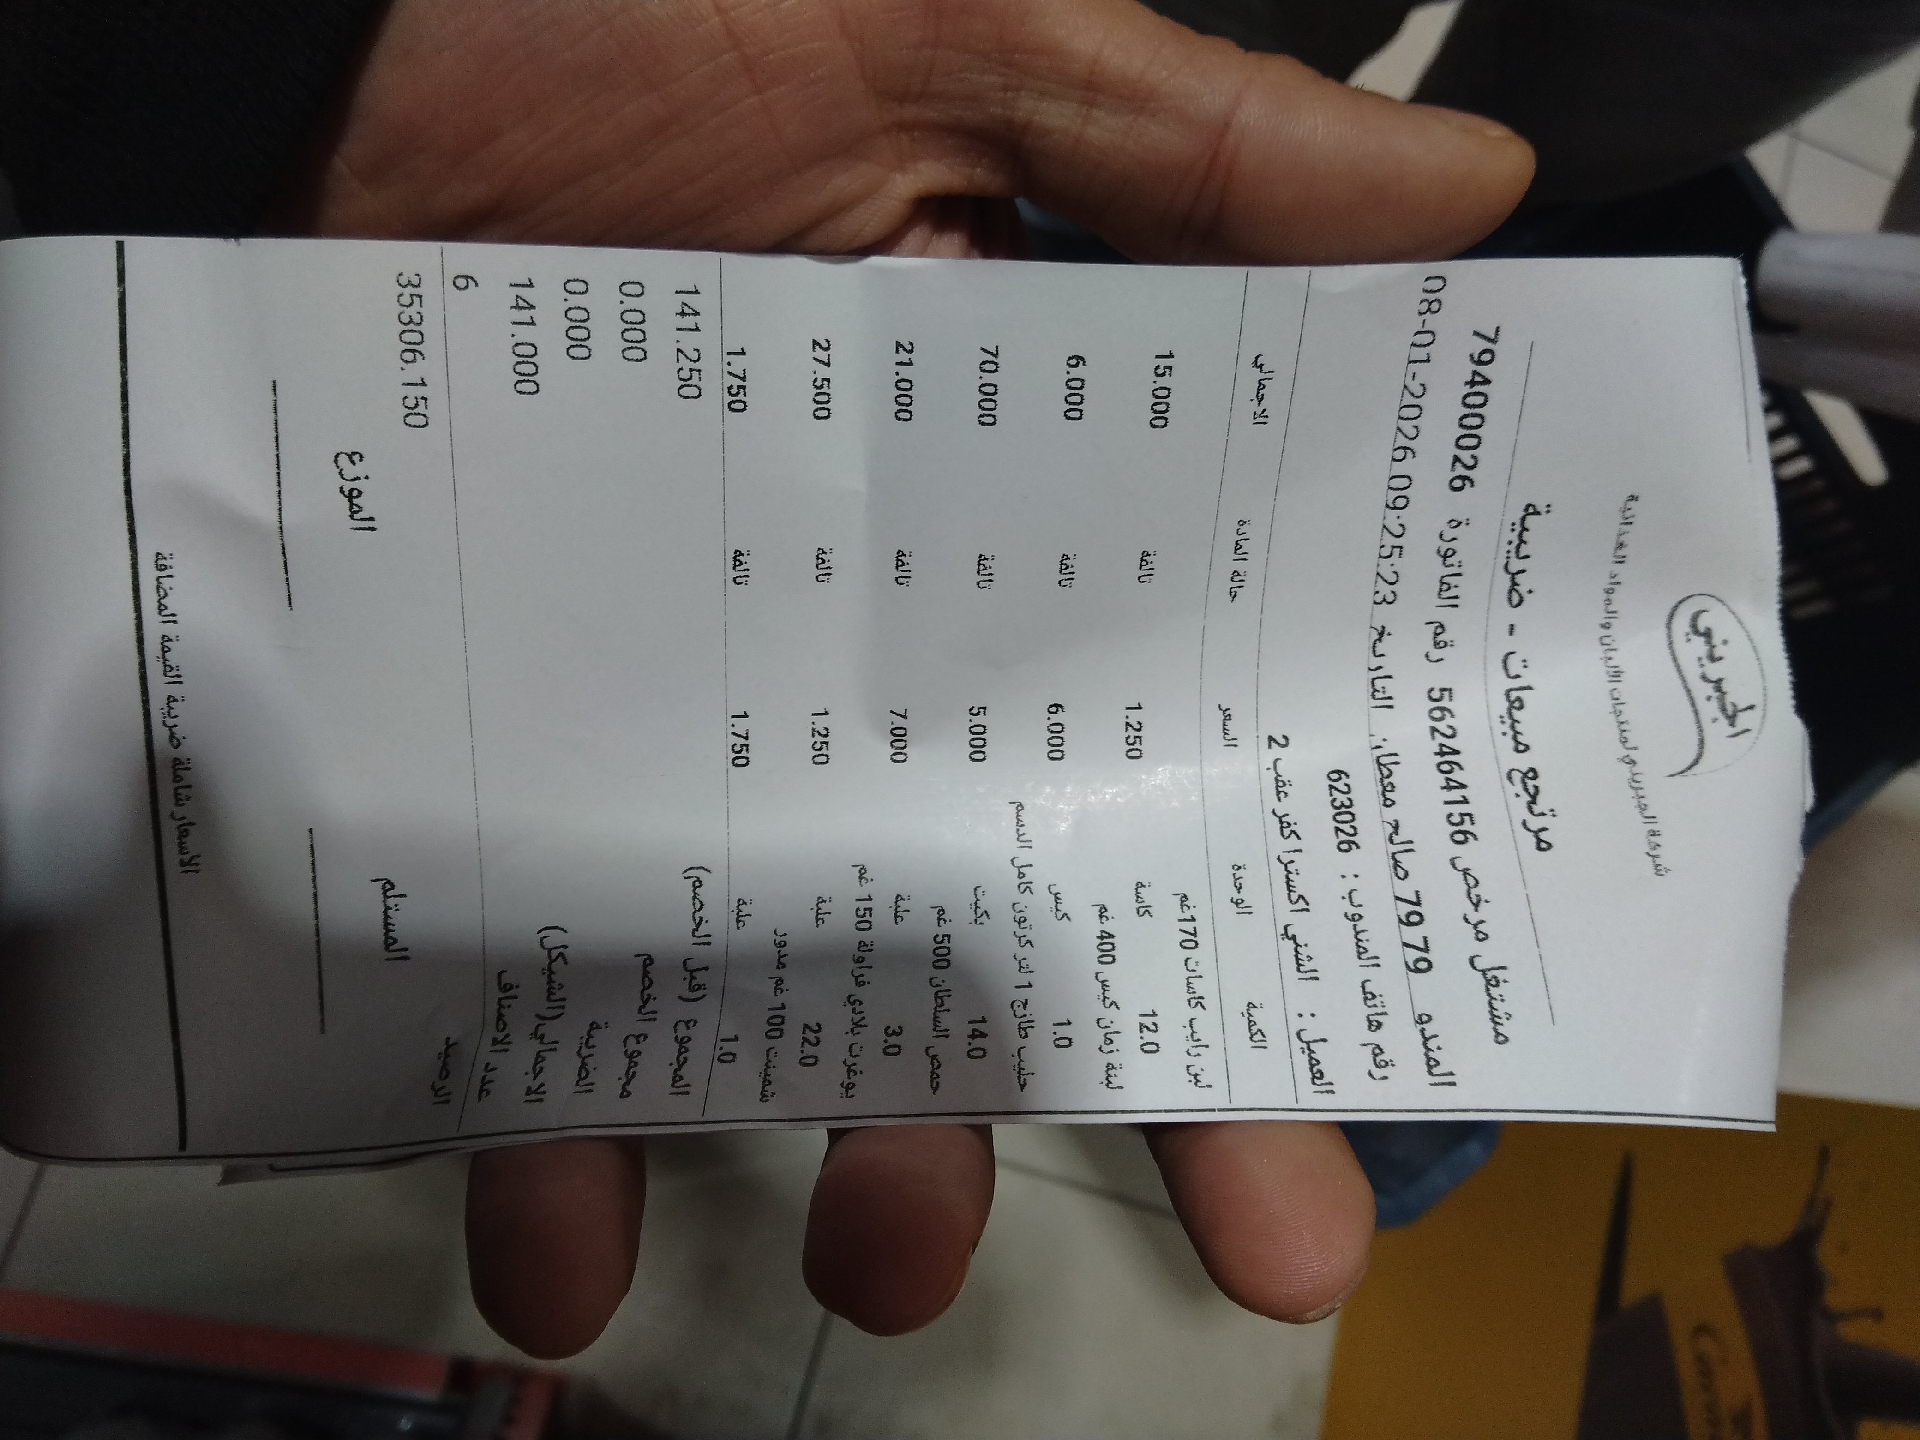 الجبريني
شركة الجبريني لمنتجات الألبان والمواد الغذائية
مرتجع مبيعات - ضريبية
مشتغل مرخص 562464156 رقم الفاتورة 79400026
المندو 79 79 صالح معطان التاريخ 09:25:23 08-01-2026
رقم هاتف المندوب : 623026
العميل : الشني اكسترا كفر عقب 2
الكمية الوحدة السعر حالة المادة الاجمالي
لبن رايب كاسات 170غم
12.0 كاسة 1.250 تالفة 15.000
لبنة زمان كيس 400 غم
1.0 كيس 6.000 تالفة 6.000
حليب طازج 1 لتر كرتون كامل الدسم
14.0 بكيت 5.000 تالفة 70.000
حمص السلطان 500 غم
3.0 علبة 7.000 تالفة 21.000
يوغرت بلادي فراولة 150 غم
22.0 علبة 1.250 تالفة 27.500
شمينت 100 غم مدور
1.0 علبة 1.750 تالفة 1.750
المجموع (قبل الخصم) 141.250
مجموع الخصم 0.000
الضريبة 0.000
الاجمالي(الشيكل) 141.000
عدد الاصناف 6
الرصيد 35306.150
المستلم الموزع
الاسعار شاملة ضريبة القيمة المضافة